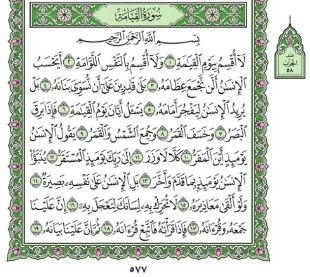 سُورَةُ القِيَامَةِ
بِسْمِ اللَّهِ الرَّحْمَٰنِ الرَّحِيمِ
لَا أُقْسِمُ بِيَوْمِ الْقِيَٰمَةِ ١ وَلَا أُقْسِمُ بِالنَّفْسِ اللَّوَّامَةِ ٢ أَيَحْسَبُ
الْإِنسَٰنُ أَلَّن نَّجْمَعَ عِظَامَهُۥ ٣ بَلَىٰ قَٰدِرِينَ عَلَىٰ أَن نُّسَوِّيَ بَنَانَهُۥ ٤ بَلْ
يُرِيدُ الْإِنسَٰنُ لِيَفْجُرَ أَمَامَهُۥ ٥ يَسْـَٔلُ أَيَّانَ يَوْمُ الْقِيَٰمَةِ ٦ فَإِذَا بَرِقَ
الْبَصَرُ ٧ وَخَسَفَ الْقَمَرُ ٨ وَجُمِعَ الشَّمْسُ وَالْقَمَرُ ٩ يَقُولُ الْإِنسَٰنُ
يَوْمَئِذٍ أَيْنَ الْمَفَرُّ ١٠ كَلَّا لَا وَزَرَ ١١ إِلَىٰ رَبِّكَ يَوْمَئِذٍ الْمُسْتَقَرُّ ١٢ يُنَبَّؤُا
الْإِنسَٰنُ يَوْمَئِذٍ بِمَا قَدَّمَ وَأَخَّرَ ١٣ بَلِ الْإِنسَٰنُ عَلَىٰ نَفْسِهِۦ بَصِيرَةٌ ١٤
وَلَوْ أَلْقَىٰ مَعَاذِيرَهُۥ ١٥ لَا تُحَرِّكْ بِهِۦ لِسَانَكَ لِتَعْجَلَ بِهِۦ ١٦ إِنَّ عَلَيْنَا
جَمْعَهُۥ وَقُرْءَانَهُۥ ١٧ فَإِذَا قَرَأْنَٰهُ فَاتَّبِعْ قُرْءَانَهُۥ ١٨ ثُمَّ إِنَّ عَلَيْنَا بَيَانَهُۥ ١٩
الحزب
٥٨
٥٧٧